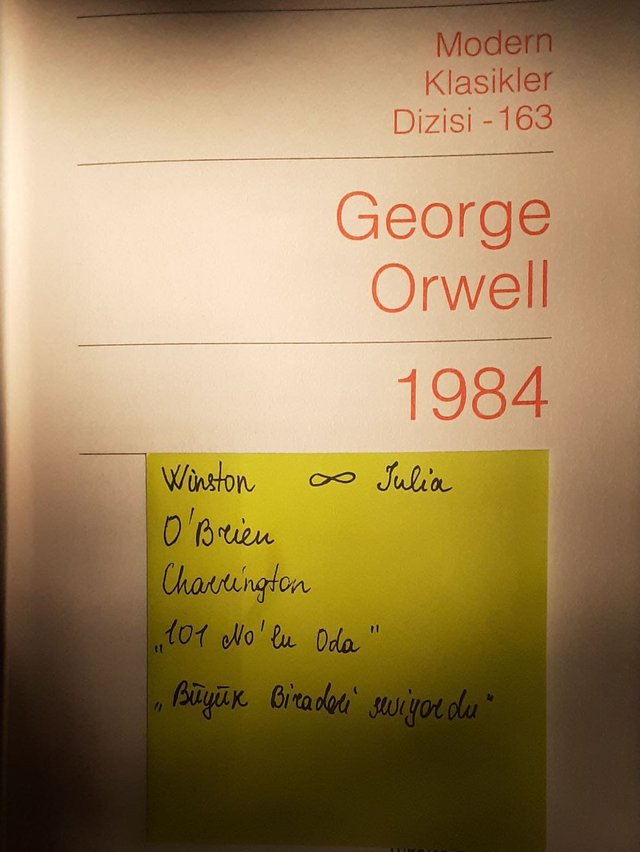 Modern
Klasikler
Dizisi - 163
George
Orwell
1984
Winston ∞ Julia
O'Brien
Charrington
„101 No'lu Oda"
„Büyük Biraderi seviyordu"